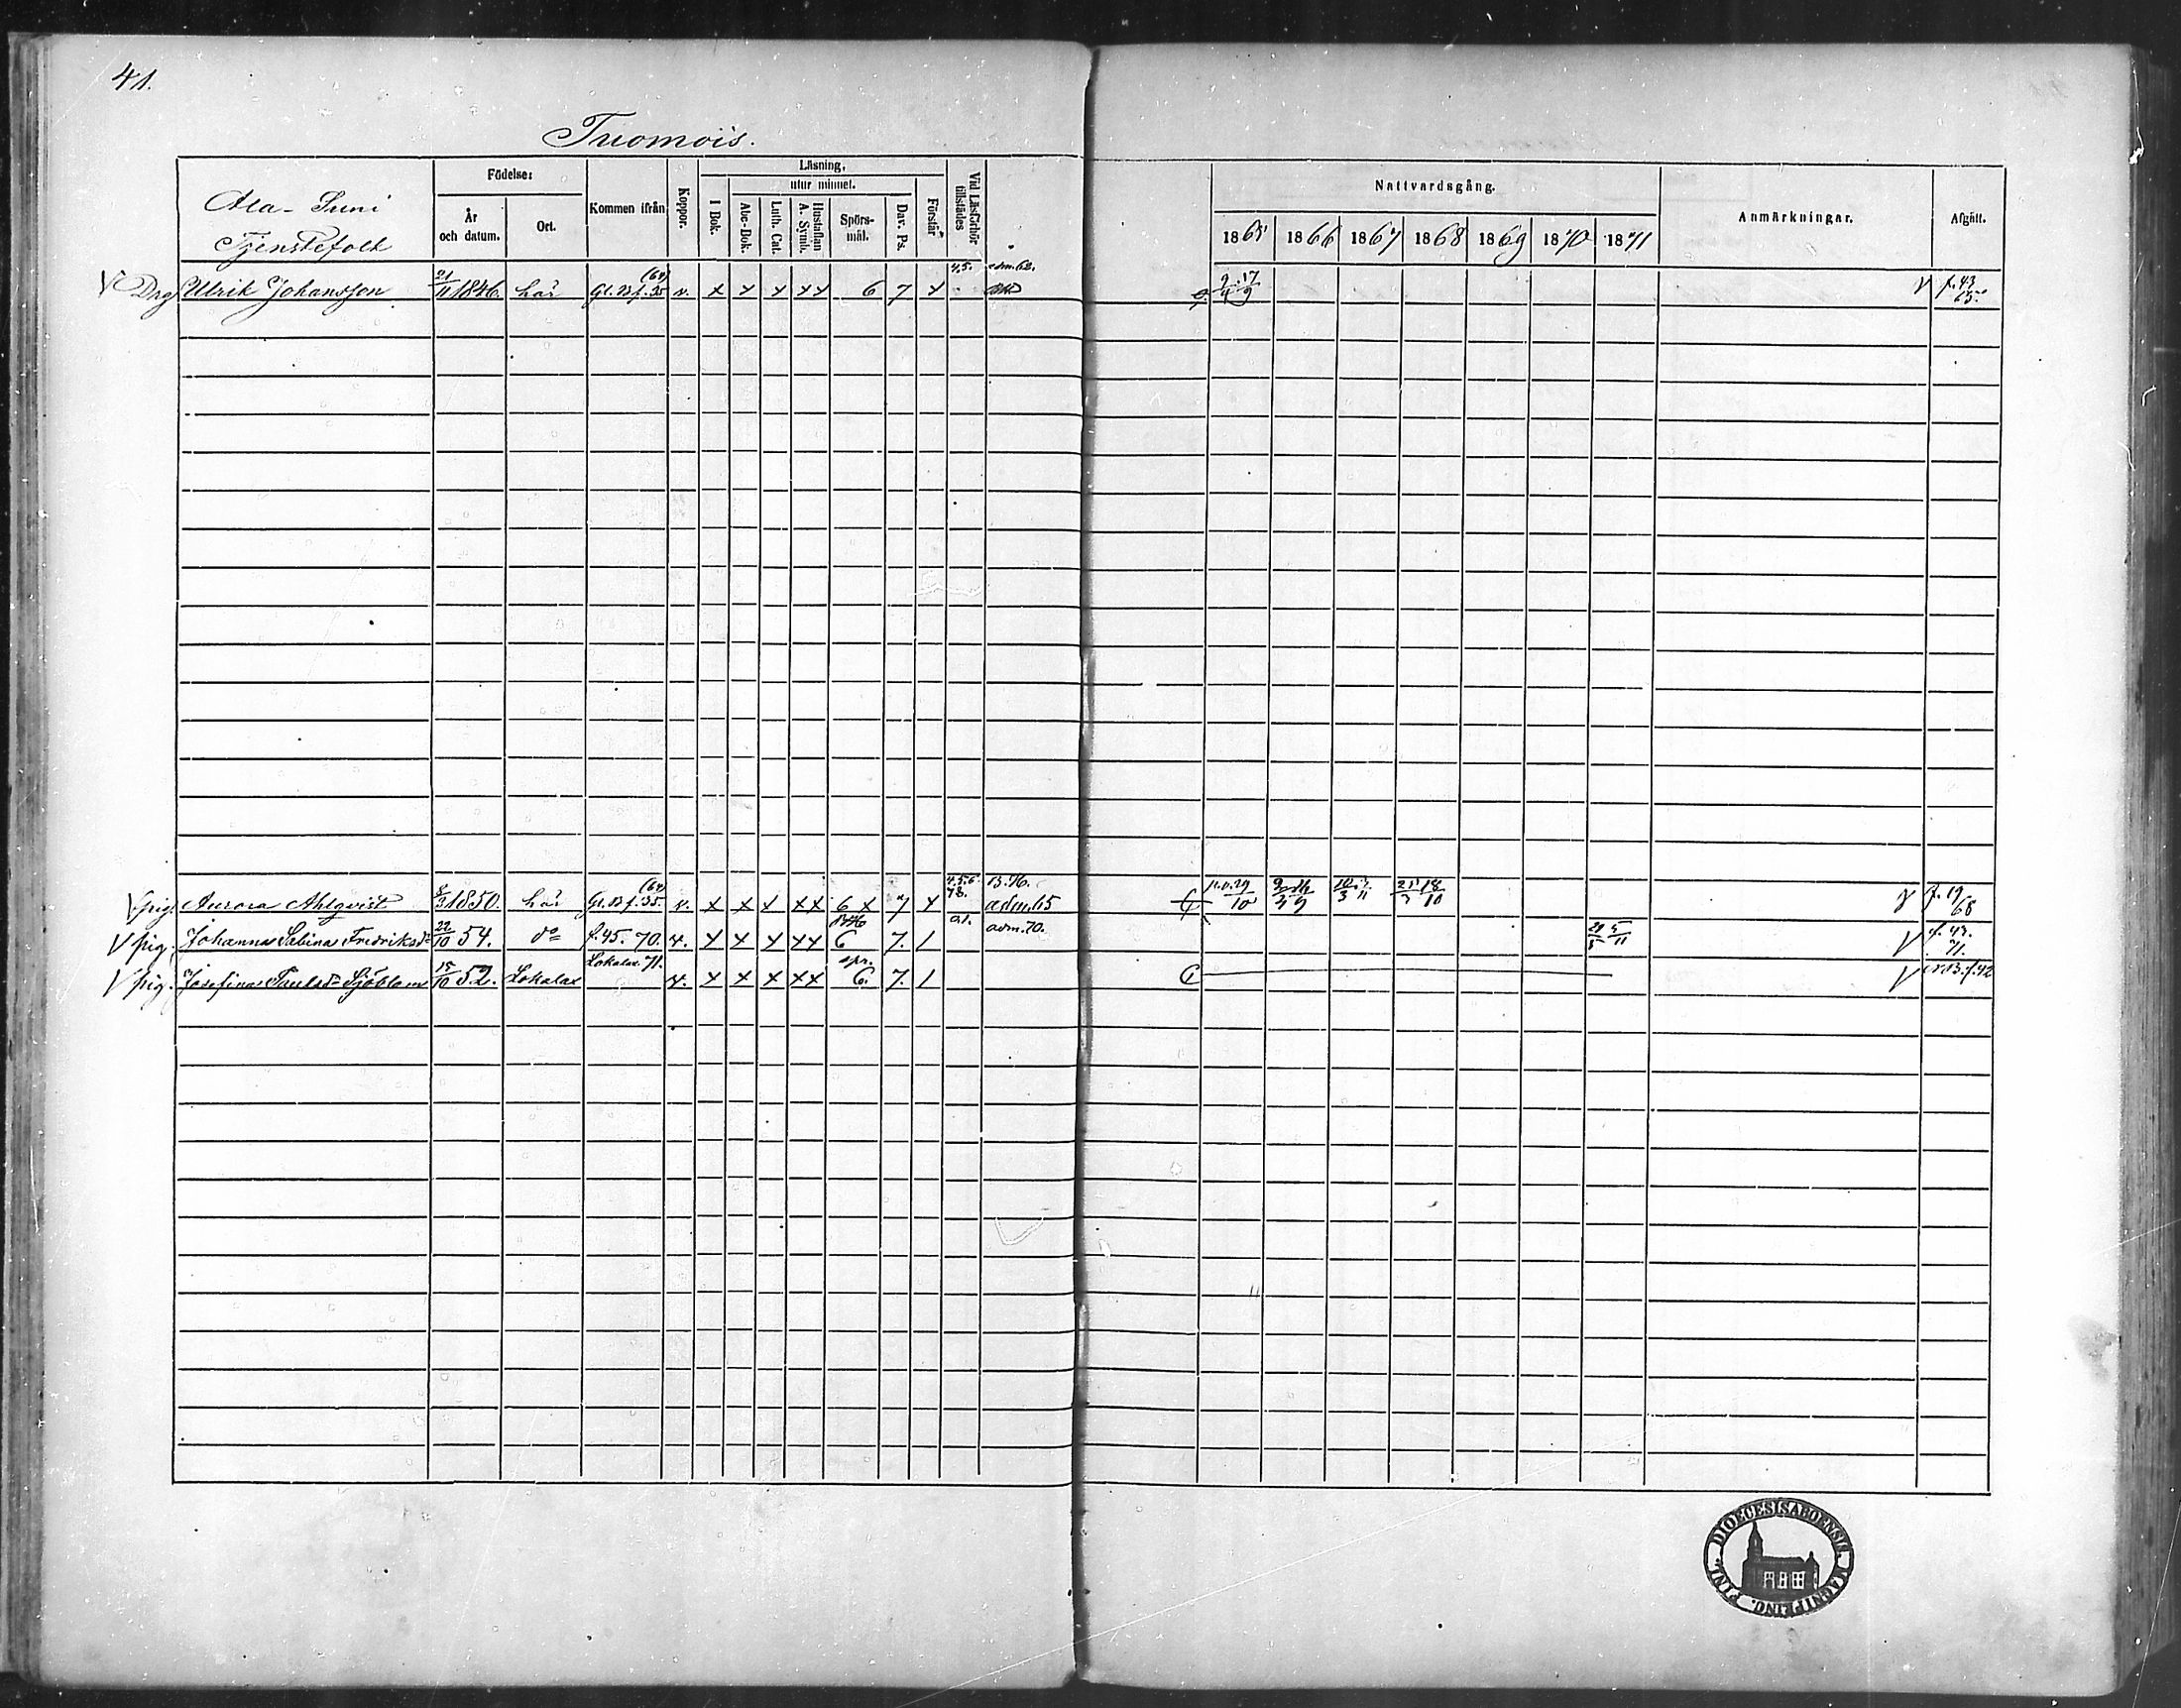 41.
Tuomois.
Ala-Suni
Tjenstefolk
Födelse:
År och datum.
Ort.
Kommen ifrån
Koppor.
Läsning,
utur minnet.
I Bok.
Abc-Bok.
Luth. Cat.
Hustaflan A. Symb.
Spörs-mål.
Dav. Ps.
Förstår
Vid Läsförhör tillstädes
Nattvardsgång.
1865 1866 1867 1868 1869 1870 1871
Anmärkningar.
Afgått.
V Drg Ulrik Johansson 21/11 1846. här Gl. B. f. 35 (64) v. x x x x x 6 7 x 4.5. adm. 62. 17/9 V f. 43 65.
V pig. Aurora Ahlqvist 1850. här Gl. B f. 35. (64) v. x x x x x 6 x 7 x 4.5.6 78. B.76. adm. 65 29/10 18/10 f. 19 68
V pig. Johanna Sabina Fredriksdr 22/10 54. do f. 45. 70. v. x x x x x 6 7. / adm. 70. 5/11 V f. 43. 71.
V pig. Josefina Paulsdr Sjöblom 15/10 52. Lokalax Lokalax 71. v. x x x x x spr. 6. 7. / V f. 42
DIOECESIS ABOENSIS. MAGNI PRINC. FINL.